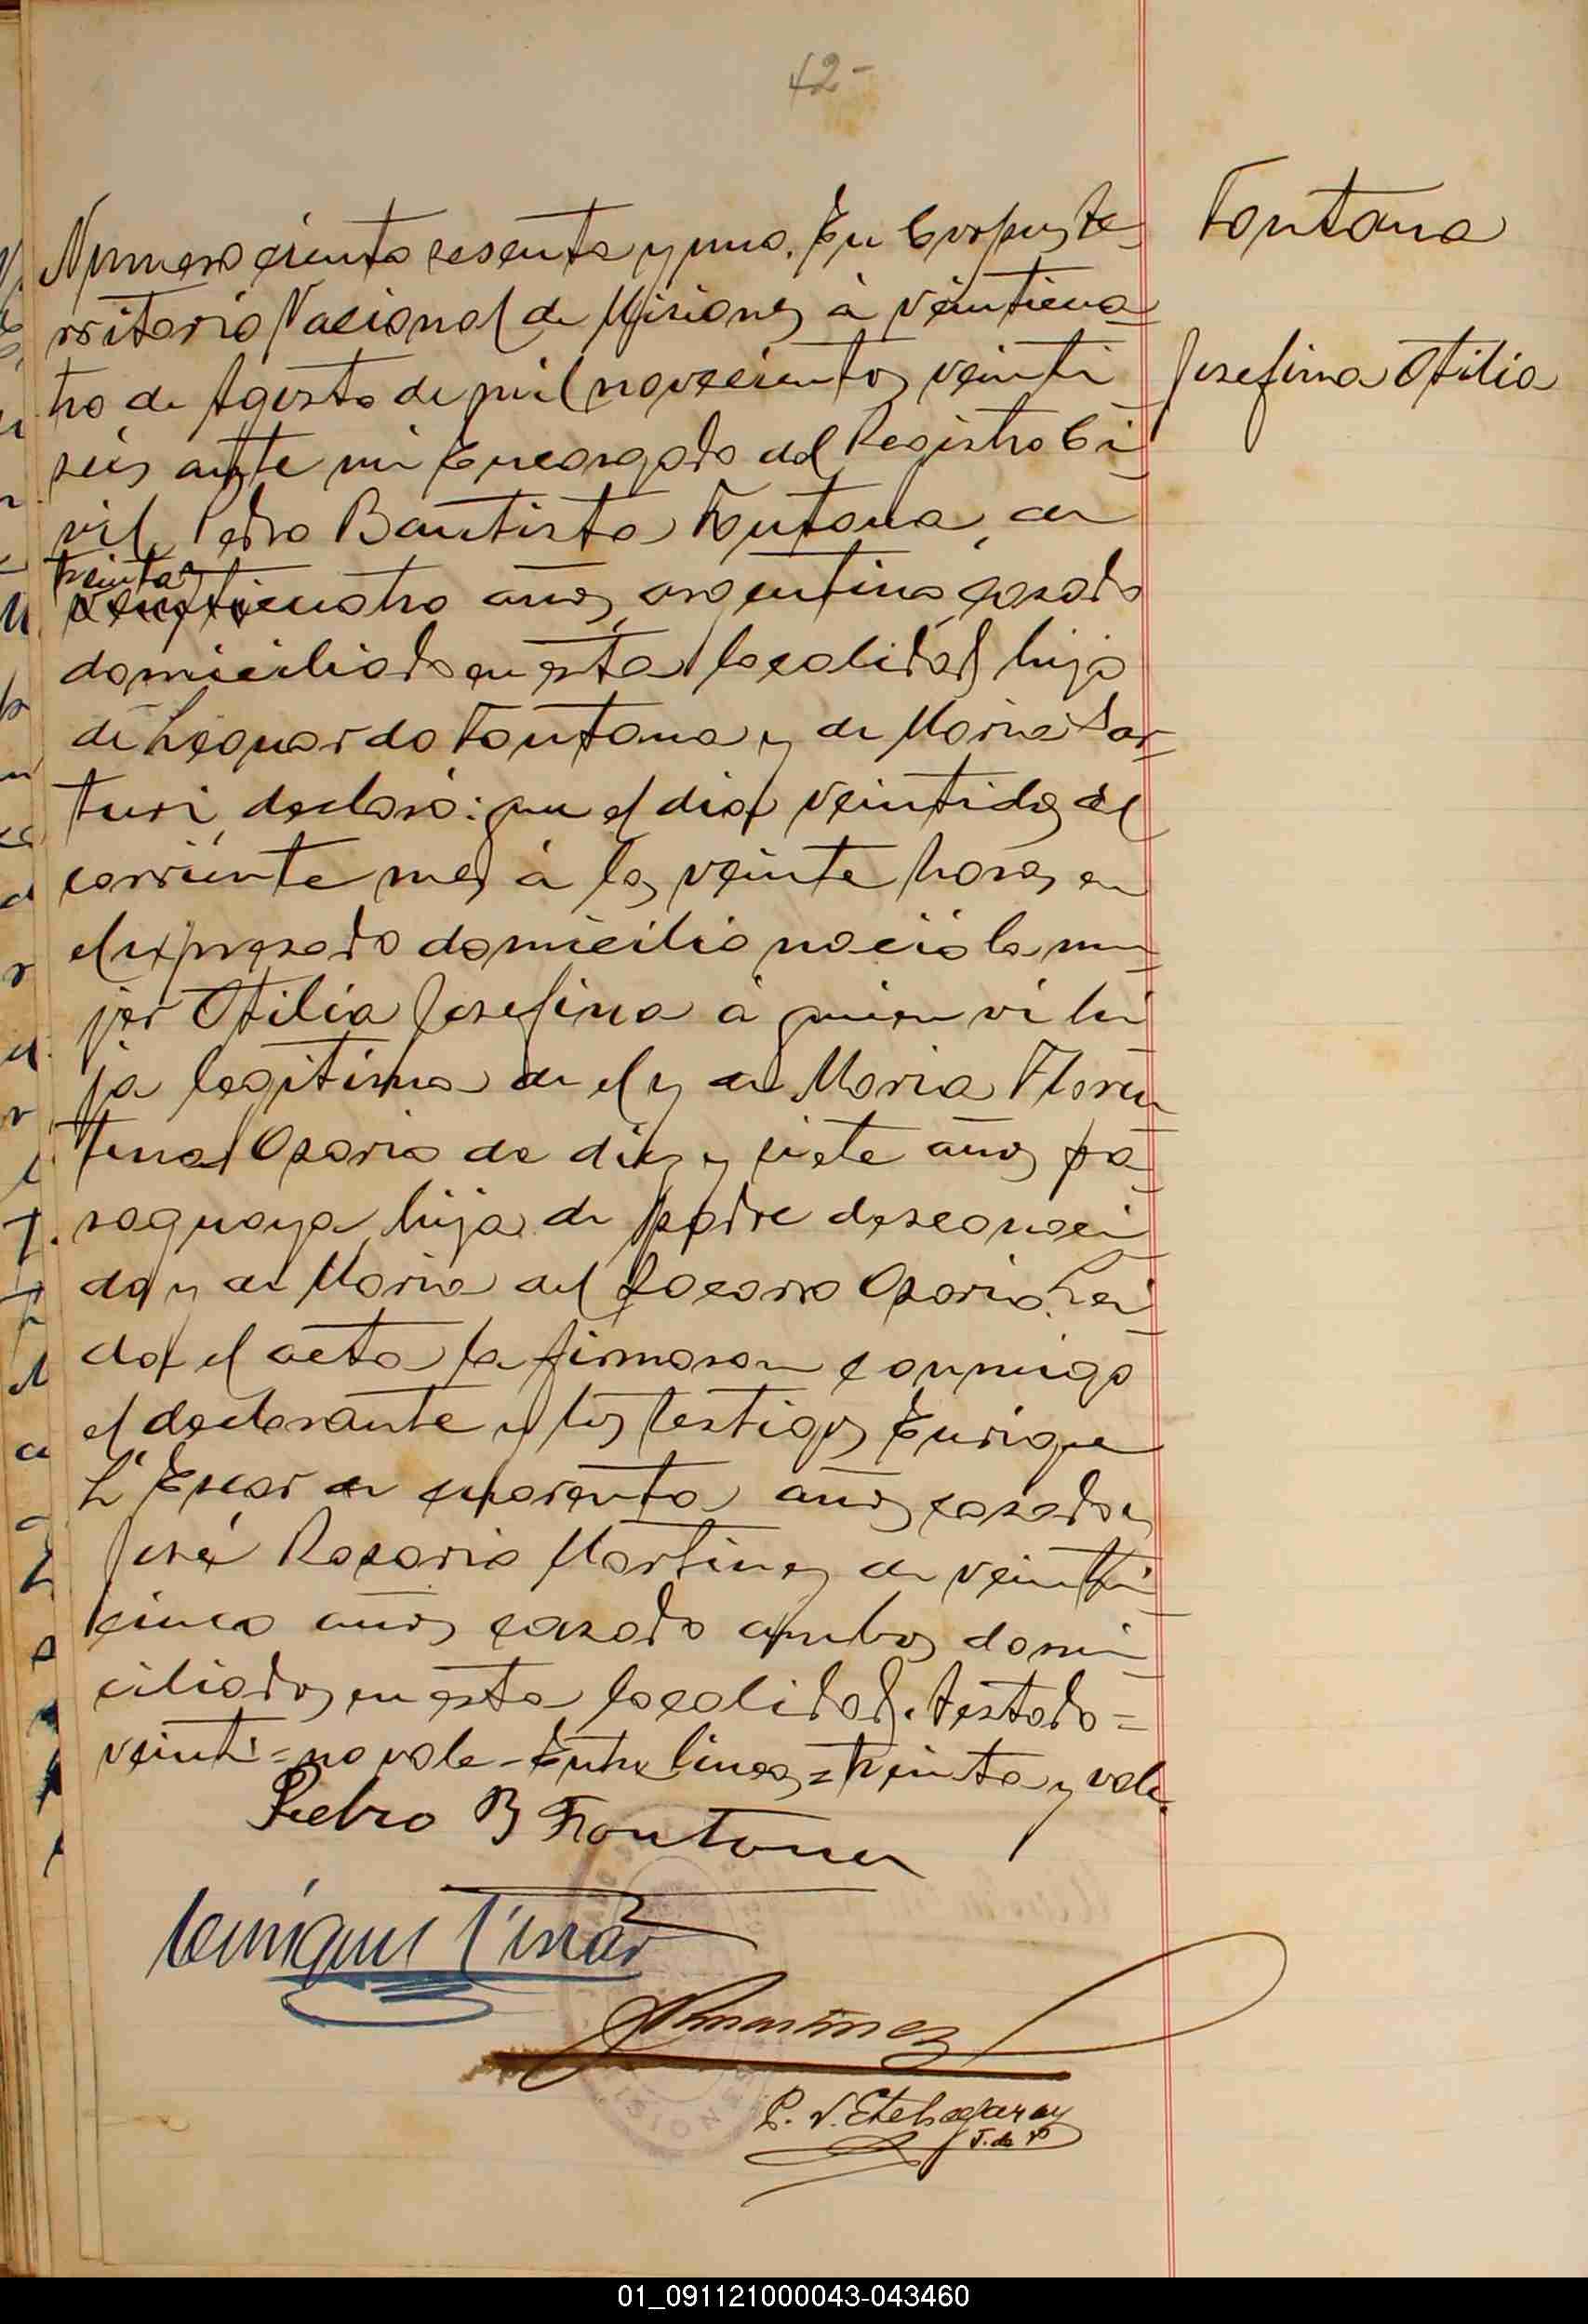 42-
Fontana
Josefina Otilia
Numero ciento sesenta y uno. En Corpus, te-
rritorio Nacional de Misiones á veinticua-
tro de Agosto de mil novecientos veinti
seis ante mi Encargado del Registro Ci-
vil, Pedro Bautista Fontana, de
treinta y
veinticuatro años, argentino casado
domiciliado en esta localidad hijo
de Leonardo Fontana y de Maria Sar-
turi, declaró: que el dia veintidos del
corriente mes á las veinte horas en
el expresado domicilio nació la mu-
jer Otilia Josefina á quien vi hi
ja legitima de el y de Maria Floren
tina Osorio de diez y siete años pa-
raguaya, hija de padre desconoci-
do y de Maria del Socorro Osorio. Lei-
da el acta la firmaron conmigo
el declarante y los testigos Enrique
L'Escar de cuarenta años casado y
José Rosario Martinez de veinti-
cinco años casado ambos domi-
ciliados en esta localidad. Testado=
veinti=no vale-Entre lineas=treinta y vale.
Pedro B Fontana
Enrique L'Escar
JRMartinez
P. V. Etchegaray
J. de P
01_091121000043-043460